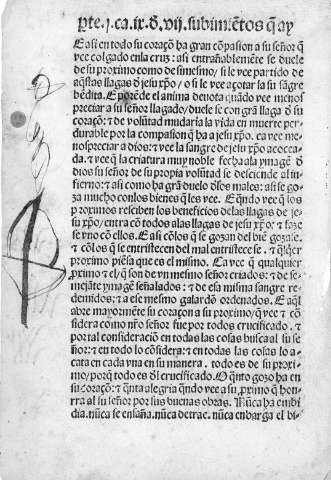 pte .j. ca. iv. ð. vij. subimiẽtos q̃ ay
E asi en todo su coraçõ ha gran cõpasion a su señor q̃
vee colgado en la cruz: asi entrañablemẽte se duele
de su proximo como de si mesmo/ si le vee partido de
aq̃stas llagas ð jesu xp̃o/ o si le vee açotar la su sãgre
bẽdita. E porẽde el anima deuota quãdo vee menos
preciar a su señor llagado/ duele se con grã llaga ð su
coraçõ: ⁊ de volũtad mudaria la vida en muerte per-
durable por la compasion q̃ ha a jesu xp̃o. ca vee me
nospreciar a dios: ⁊ vee la sangre de jesu xp̃o acocea
da. ⁊ vee q̃ la criatura muy noble fecha a la ymagẽ ð
dios su señor de su propia volũtad se desciende al in
fierno: ⁊ asi como ha grã duelo ðlos males: asi se go
za mucho con los bienes q̃ les vee. E qñdo vee q̃ los
proximos resciben los beneficios de las llagas de je
su xp̃o/ entra cõ todos a las llagas de jesu xp̃o: ⁊ faze
se vno cõ ellos. E asi cõ los q̃ se gozan del biẽ goza se.
⁊ cõ los q̃ se entristecen del mal entristece se. ⁊ q̃lq̃er
proximo piẽsa que es el mismo. Ca vee q̃ qualquier
proximo ⁊ el/ q̃ son de vn mesmo señor criados: ⁊ de se-
mejãte ymagẽ señalados: ⁊ de esa misma sangre re-
demidos: ⁊ a ese mesmo galardõ ordenados. E aq̃l
abre mayormẽte su coraçon a su proximo/ q̃ vee ⁊ cõ
sidera como nr̃o señor fue por todos crucificado. ⁊
por tal consideraciõ en todas las cosas busca al su se
ñor: ⁊ en todo lo cõsidera: ⁊ en todas las cosas lo a
cata en cada vna en su manera. todo es de su proxi
mo/ porq̃ todo es ðl crucificado. O q̃nto gozo ha en
su coraçõ: ⁊ q̃nta alegria qñdo vee a su proximo q̃ hon
rra al su señor por sus buenas obras. Nũca ha embi
dia. nũca se ensaña. nũca detrae. nũca enbarga el bi-